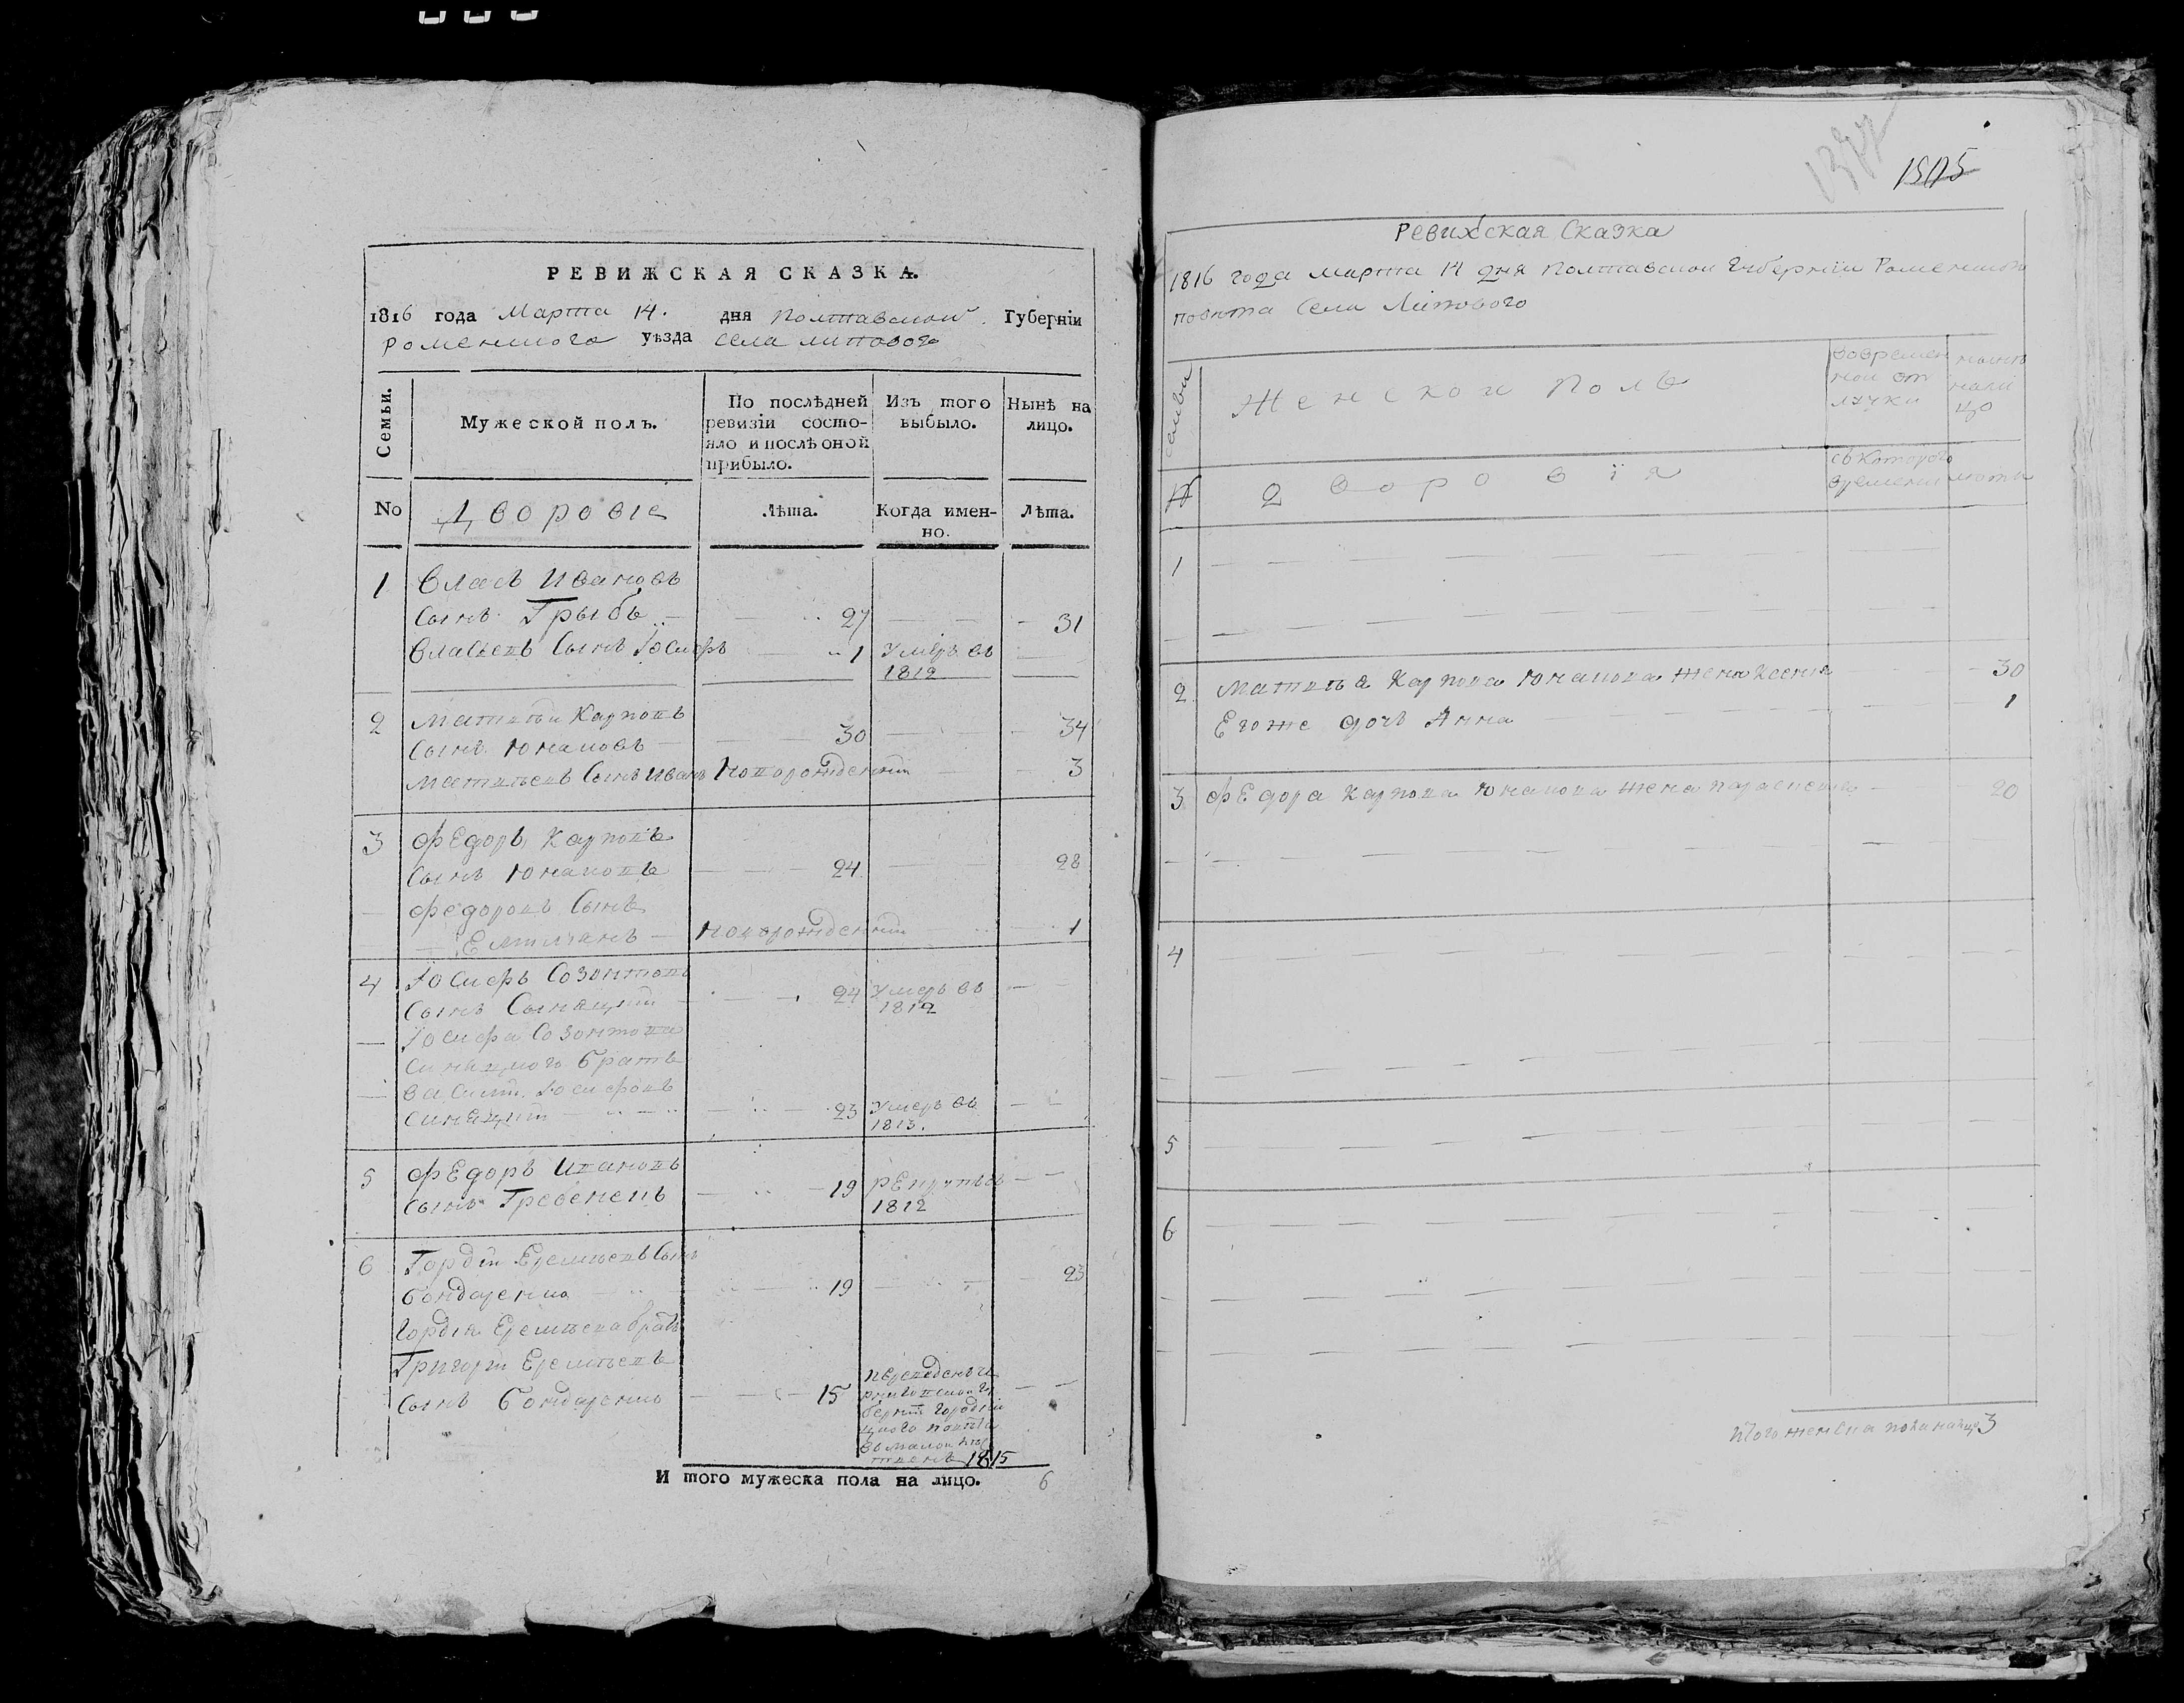 РЕВИЖСКАЯ СКАЗКА.
1816 года Марта 14. дня полтавской Губерніи
роменского уѣзда села липового
Семьи.
Мужеской полъ.
По послѣдней ревизіи состояло и послѣ оной прибыло.
Изъ того выбыло.
Нынѣ на лицо.
No
Дворовіе
Лѣта.
Когда именно.
Лѣта.
1 Власъ Ивановъ
сынъ Грыбъ 27 31
Власьевъ Сынъ Іосифъ 1 Умеръ въ
1812
2 Матвѣй Карповъ
сынъ Юнаковъ 30 34
Матвѣевъ Сынъ Иванъ Новорожденній 3
3 Федоръ Карповъ
Сынъ Юнаковъ 24 28
Федоровъ Сынъ
Емелианъ Новорожденній 1
4 Іосифъ Созонтовъ
Сынъ 24 Умеръ въ
1812
Іосифа Созонтова
братъ
Василій Іосифовъ
23 Умеръ въ
1813.
5 Федоръ Ивановъ
сынъ Гребенец 19 Рекрутъ въ
1812
6 Гордій Еремѣевъ Сынъ
бондаренко 19 23
Гордія Еремѣева братъ
Григорій Еремѣевъ
сынъ Бондаренко 15
Переведенъ че
рниговской гу
берніи Городни
цкого повѣта
1815
И того мужеска пола на лицо. 6
1377
1505
Ревижская Сказка
1816 года Марта 14 дня полтавской Губерніи Роменского
повѣта Села Липового
Семьи
Женской Полъ
Во времен
ной от
лучки
нынѣ
на ли
цо
N
Дворовія
съ которого
времени
лѣта
1
2 Матвѣя Карпова Юнакова жена Ксенія 30
Егоже дочь Анна 1
3 Федора Карпова Юнакова жена параскевія 20
4
5
6
Итого женска пола на лицо 3